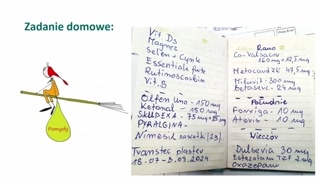 Zadanie domowe:
Pomysły
Vit D3
Magnez
Selen + Cynk
Essentiale forte
Rutinoscorbin
Vit. B
Olfen Uno - 150 mg
Ketonal - 150 mg
SKUDEXA - 75 mg + 25 mg
PYRALGINA -
Nimesil saszetki (2g)
Transtec plaster
Rano
Co-Valsacor
160 mg + 12,5 mg
Metocard ZK 47,5 mg
Milurit - 300 mg
Betaserc - 24 mg
Południe
Forxiga - 10 mg
Atoris - 10 mg
Wieczór
Dulsevia 30 mg
Estazolam TZF 2 mg